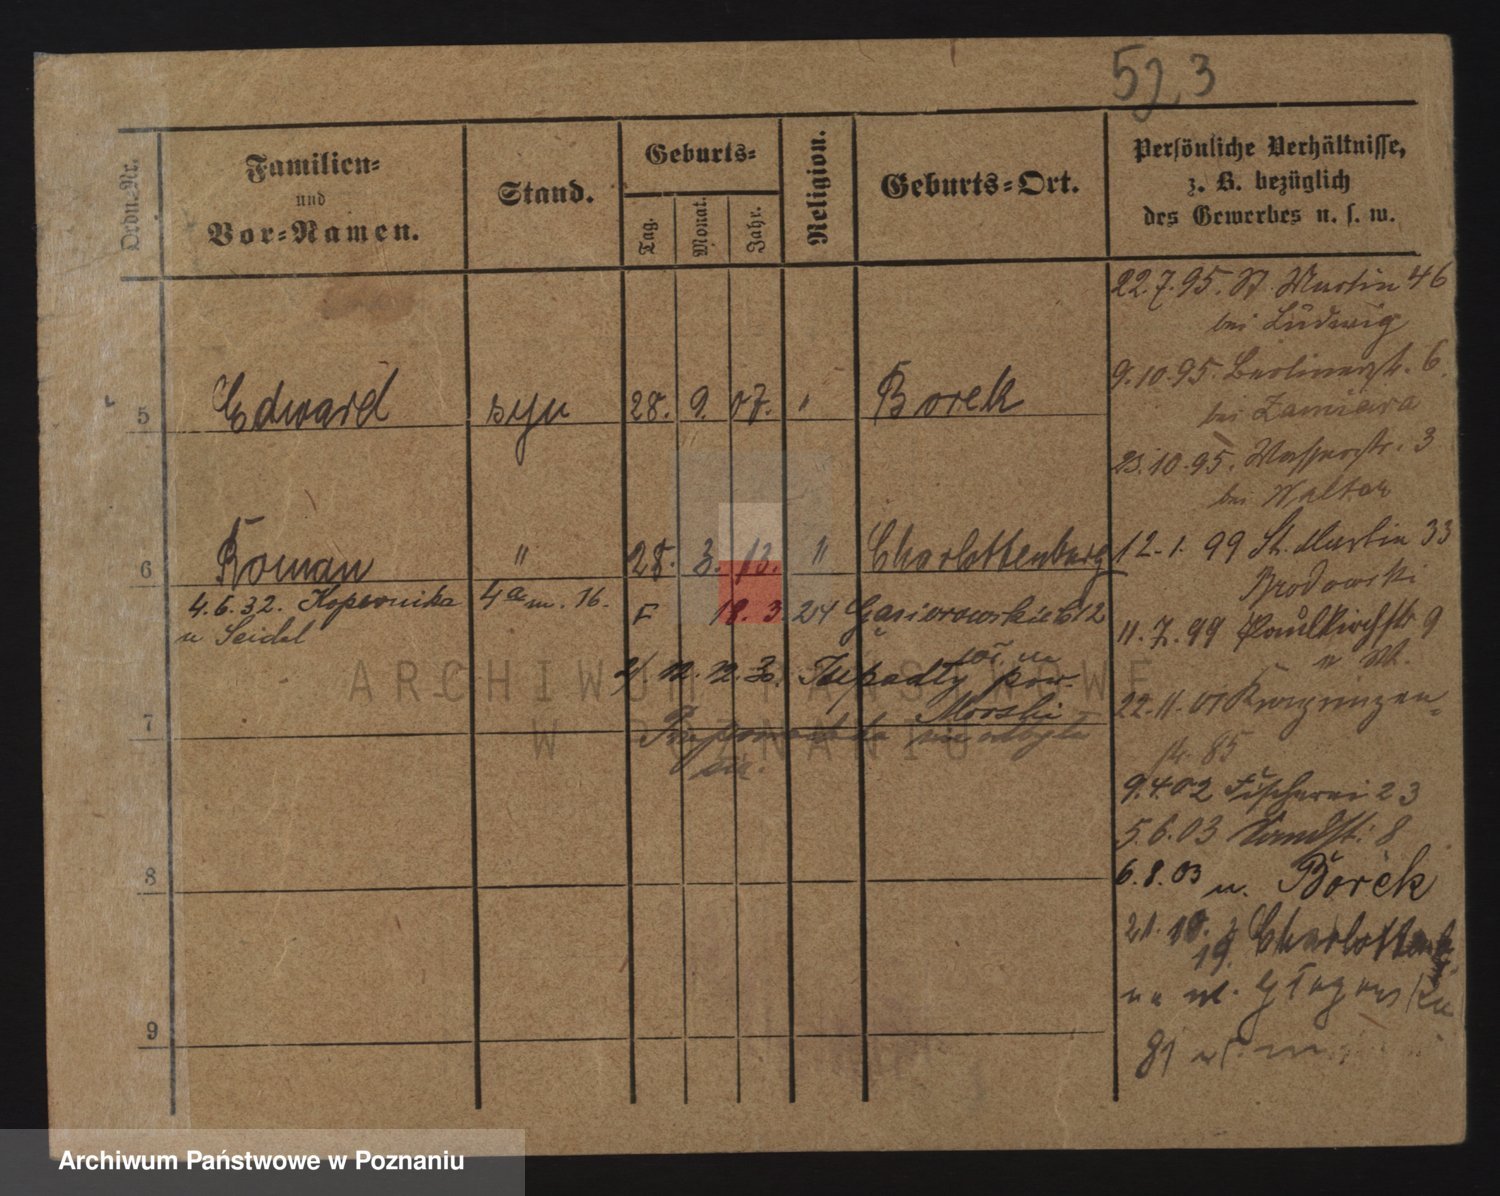 523
Ordn.-Nr.
Familien-
und
Vor-Namen.
Stand.
Geburts-
Tag.
Monat.
Jahr.
Religion.
Geburts-Ort.
Persönliche Verhältnisse,
z. B. bezüglich
des Gewerbes u. s. w.
5 Edward syn 28. 9. 07. " Borek
6 Roman " 28. 3. 13. " Charlottenburg
4.6.32. Kopernika 4a m. 16.
u Seidel
18. 3. 24 Gąsiorowskich 12
pow.
Morski
7
8
9
22.7.95. St. Martin 46
bei Ludwig
9.10.95. Berlinerstr. 6.
bei Zamiara
23.10.95. Wasserstr. 3
bei Walter
12.1.99 St. Martin 33
Brodowski
11.7.99 Paulikirchstr 9
22.11.01
str. 85
9.4.02 Fischerei 23
5.6.03 Sandstr. 8
6.8.03 n. Borek
21.10.19. z Charlottenb.
na ul. Głogowską
81
ARCHIWUM PAŃSTWOWE
W POZNANIU
Archiwum Państwowe w Poznaniu